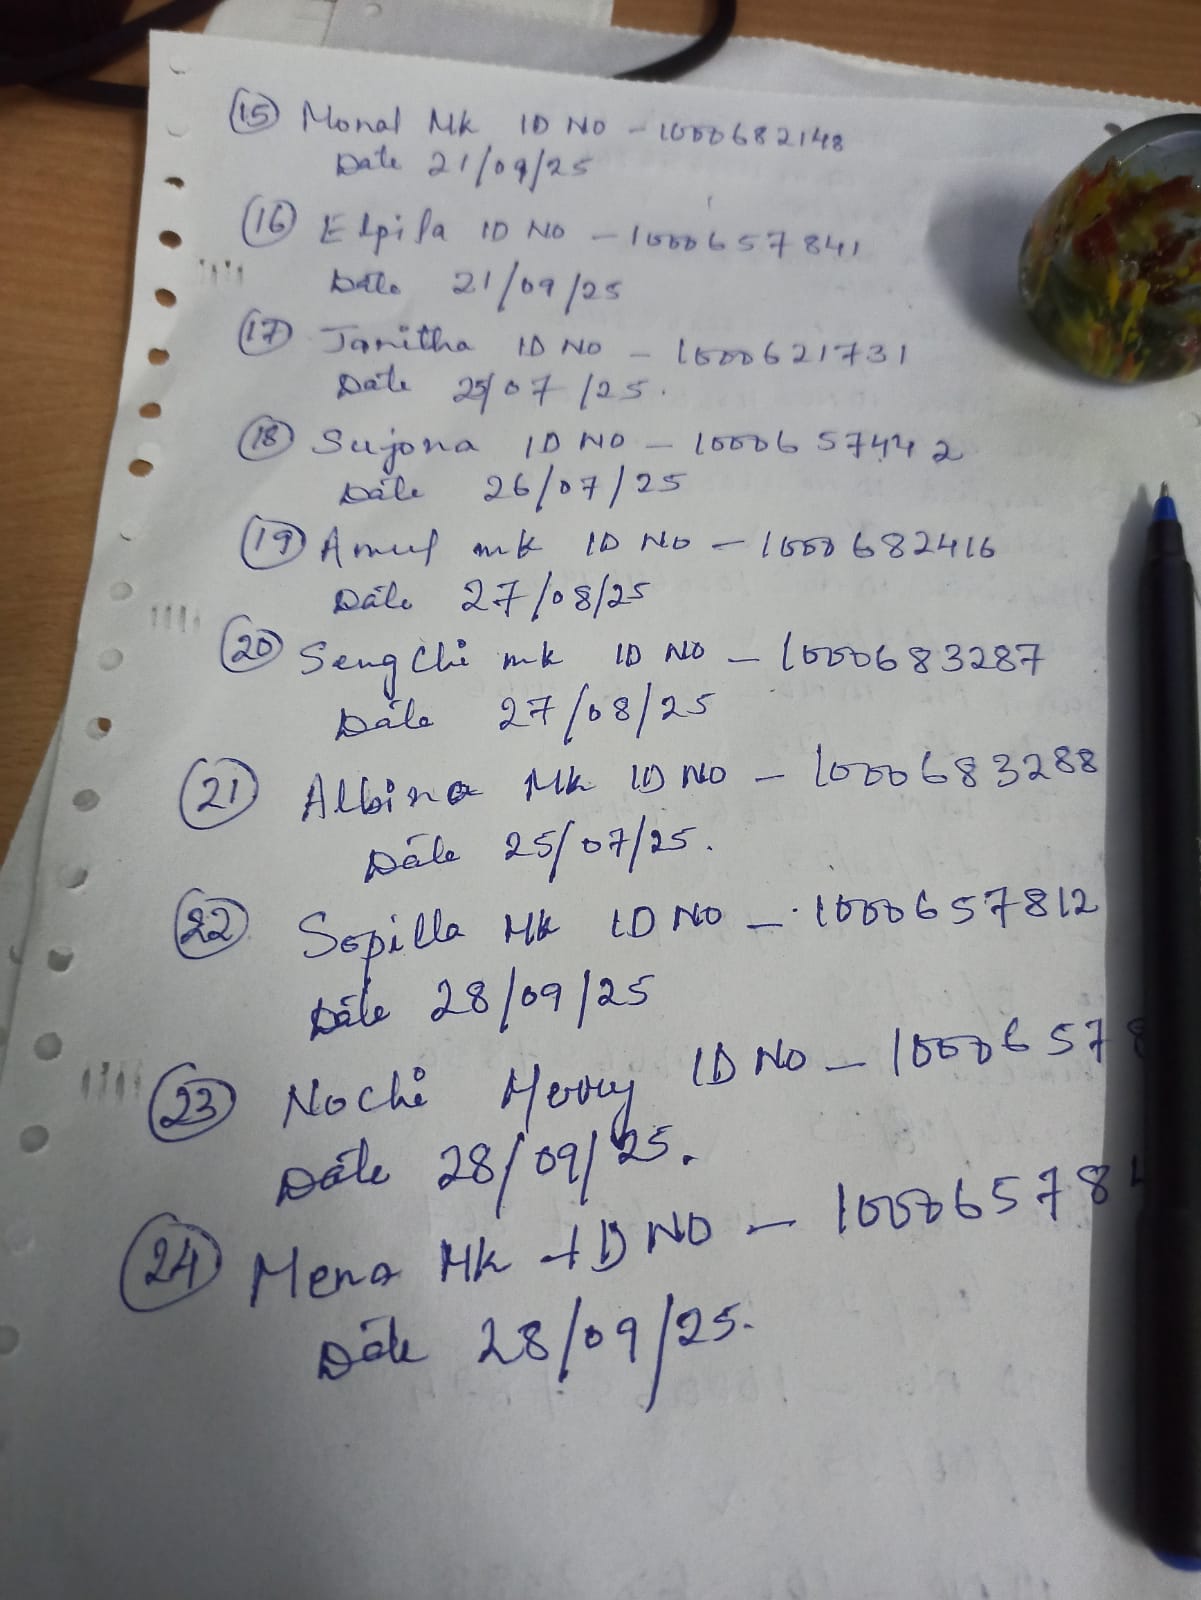 15 Monal Mk ID No - 1000682148
Date 21/09/25
16 Elpifa ID No - 1000657841
Date 21/09/25
17 Janitha ID No - 1000621731
Date 25/07/25.
18 Sujona ID No - 1000657442
Date 26/07/25
19 Amuf mk ID No - 1000682416
Date 27/08/25
20 Sengchi mk ID No - 1000683287
Date 27/08/25
21 Albina Mk ID No - 1000683288
Date 25/07/25.
22 Sopilla Mk ID No - 1000657812
Date 28/09/25
23 Nochi Merry ID No - 1000657
Date 28/09/25.
24 Mena Mk ID No - 10006578
Date 28/09/25.